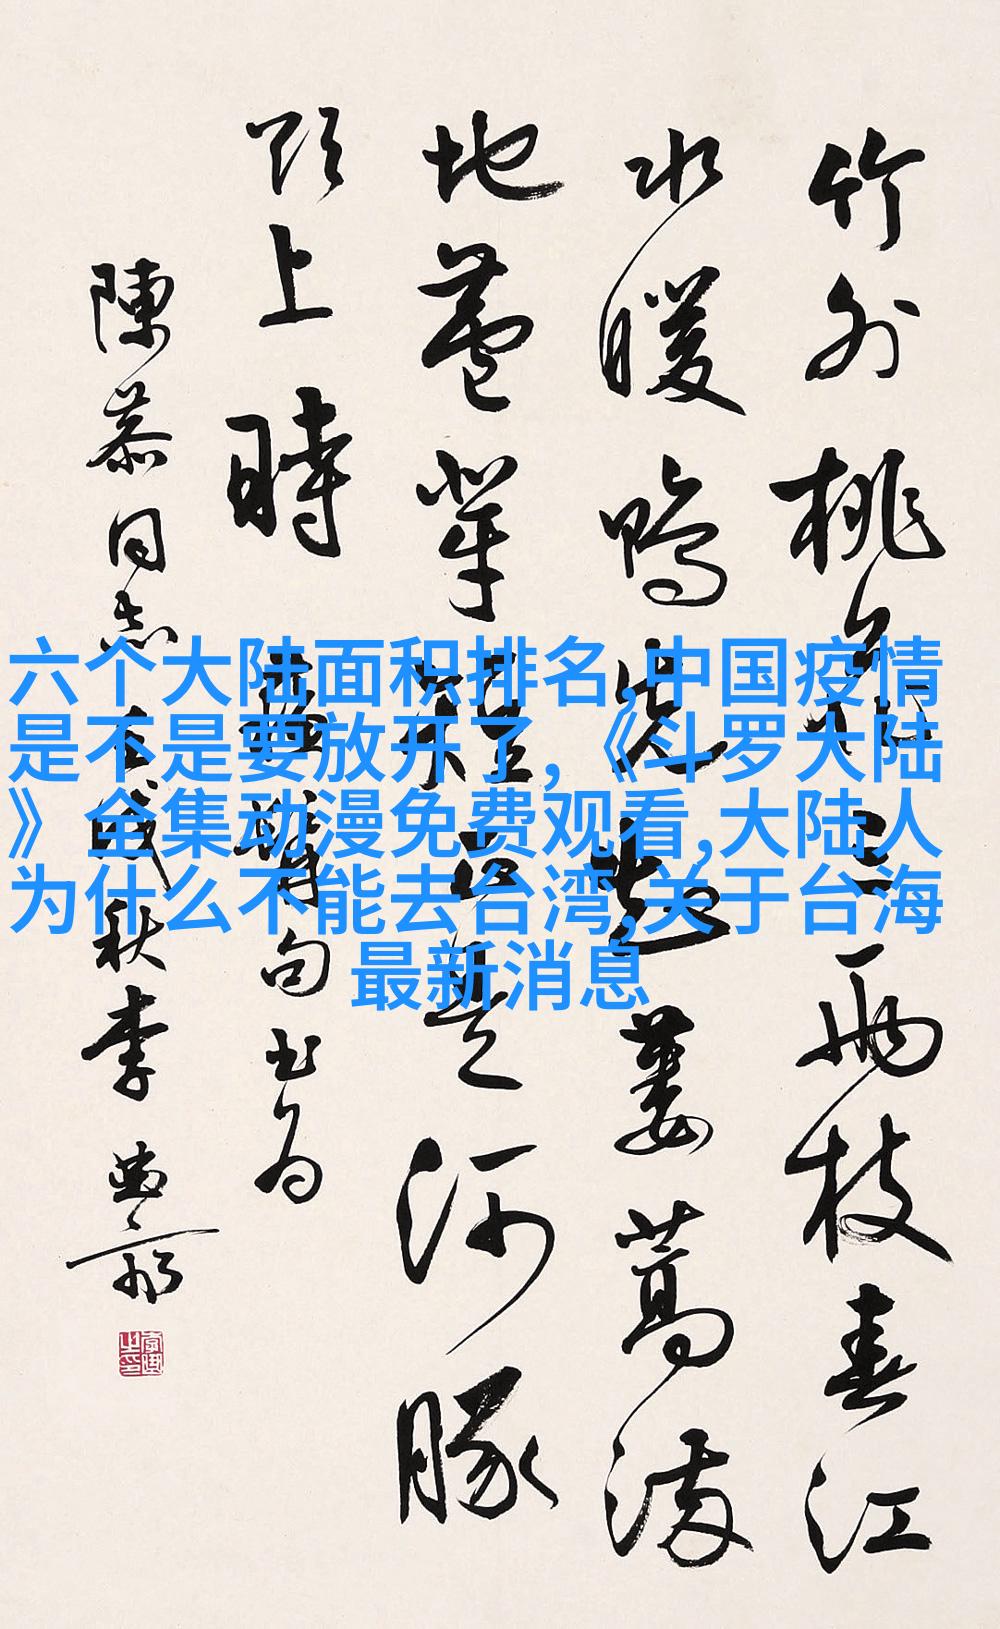 竹外桃花三兩枝春江
水暖鴨先知蔞蒿滿
地蘆芽短正是河豚
欲上時 句书为
陳慕同志 戌秋李
六个大陆面积排名,中国疫情
是不是要放开了,《斗罗大陆
》全集动漫免费观看,大陆人
为什么不能去台湾,关于台海
最新消息